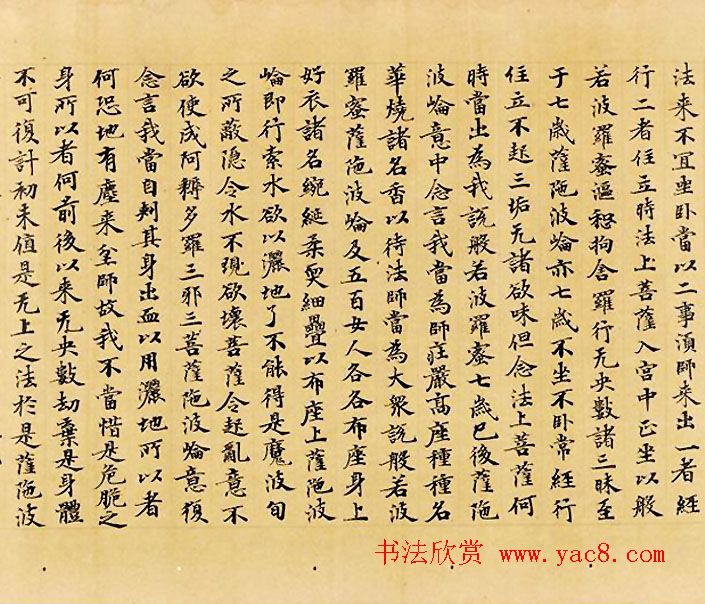 法来不宜坐卧當以二事湏師来出一者經
行二者住立時法上菩薩入宮中正坐以般
若波羅蜜漚惒拘舍羅行无央數諸三昧至
于七歲薩陁波崘亦七歲不坐不卧常經行
住立不起三垢无諸欲味但念法上菩薩何
時當出為我說般若波羅蜜七歲已後薩陁
波崘意中念言我當為師莊嚴高座種種名
華燒諸名香以待法師當為大衆說般若波
羅蜜薩陁波崘及五百女人各各布座身上
好衣諸名綩綖柔耎細疊以布座上薩陁波
崘即行索水欲以灑地了不能得是魔波旬
之所蔽隐令水不現欲壞菩薩令起亂意不
欲使成阿耨多羅三邪三菩薩陁波崘意復
念言我當自刺其身出血以用灑地所以者
何恐地有塵来坌師故我不當惜是危脆之
身所以者何前後以来无央數劫棄是身體
不可復計初未值是无上之法於是薩陁波
书法欣赏 www.yac8.com